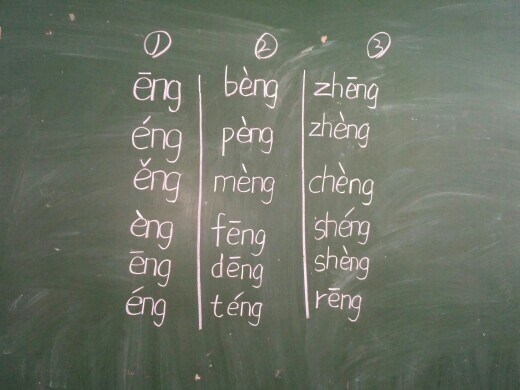 ① ② ③
ēng bèng zhēng
éng pèng zhèng
ěng mèng chèng
èng fēng shéng
ēng dēng shèng
éng téng rēng